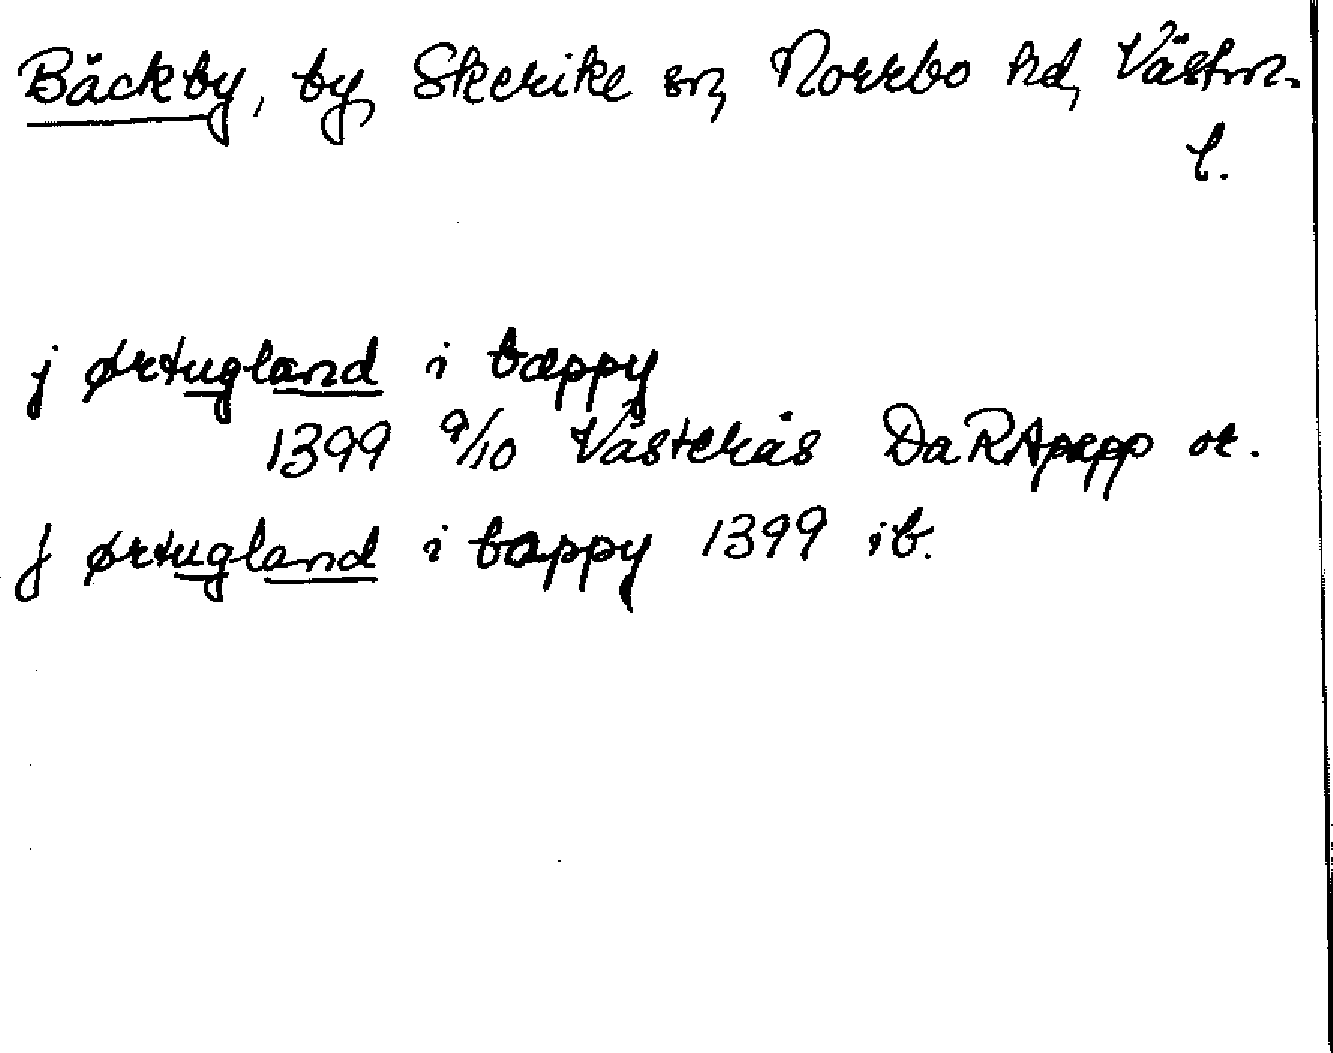 Bäckby, by, Skerike sn, Norrbo hd, Västm.
l.
j ørtugland i bæppy
1399 9/10 Västerås DaRApapp or.
j ørtugland i bappy 1399 ib.